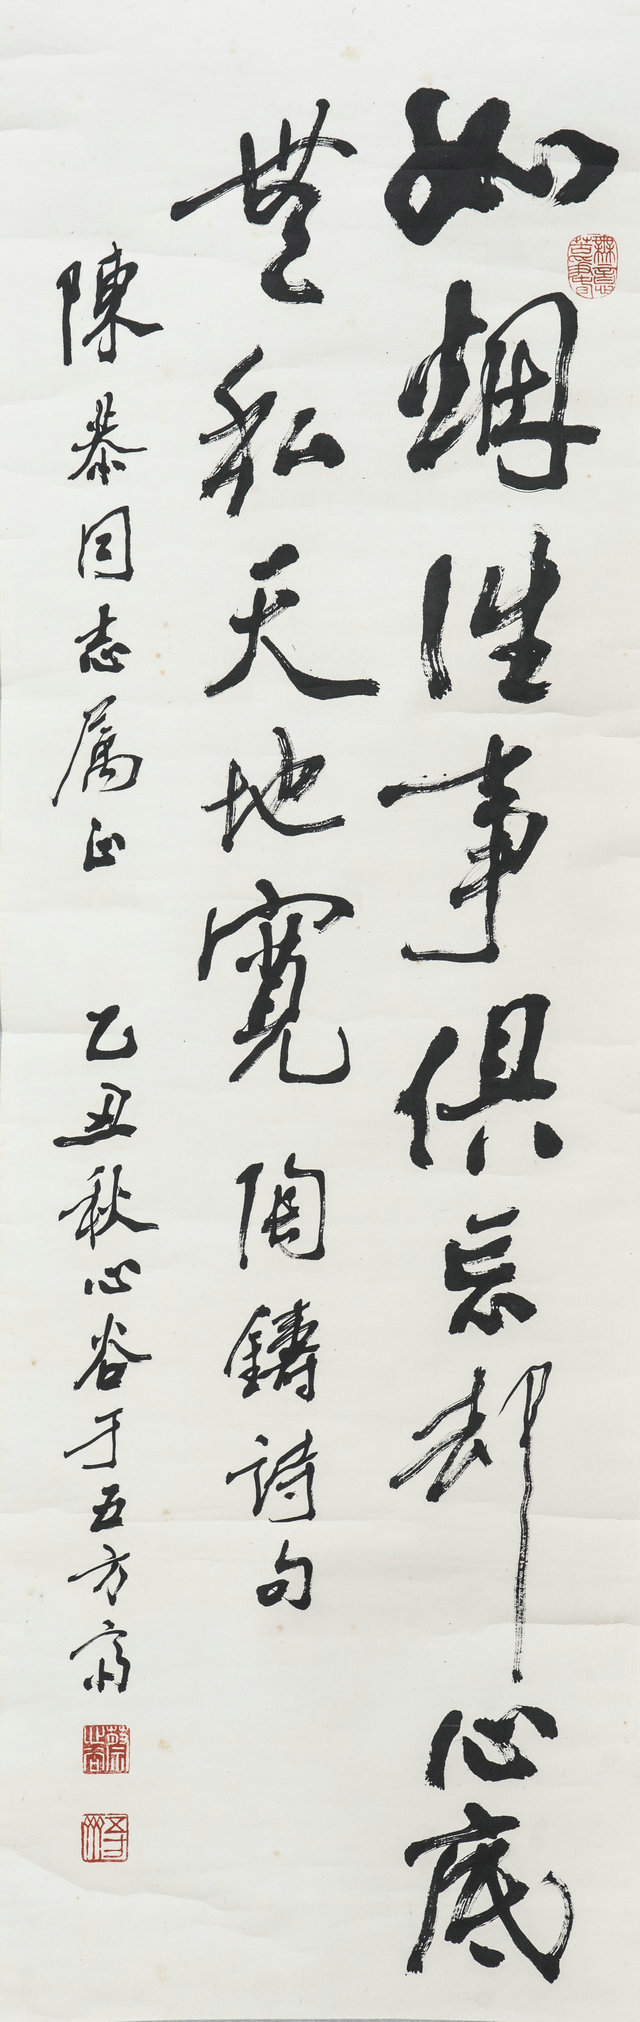 如烟往事俱忘却心底
無私天地寬 陶鑄詩句
陳恭同志属正 乙丑秋心谷于五方斋